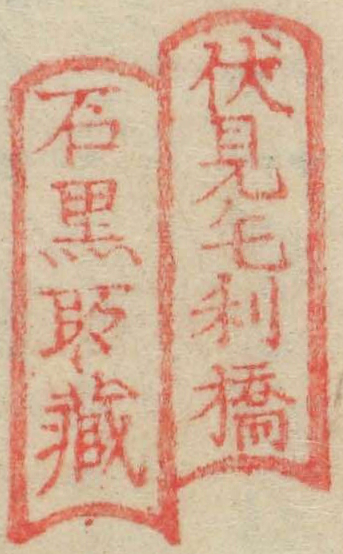 伏見毛利橋
石黒取蔵